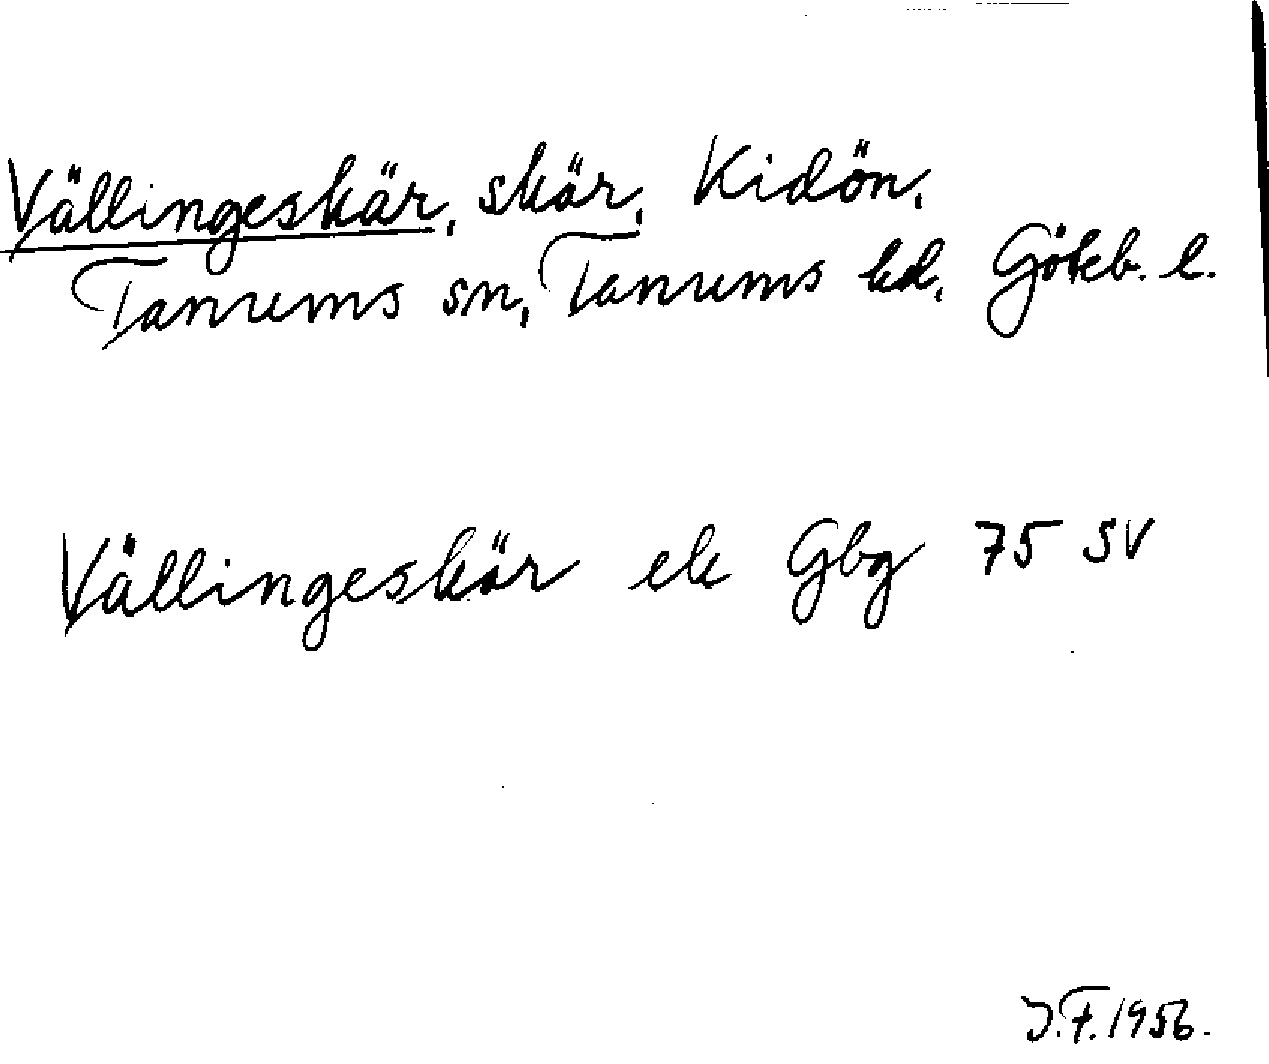 Vällingeskär, skär, Kidön,
Tanums sn, Tanums hd, Göteb. l.
Vällingeskär ek Gbg 75 SV
J.F. 1956.